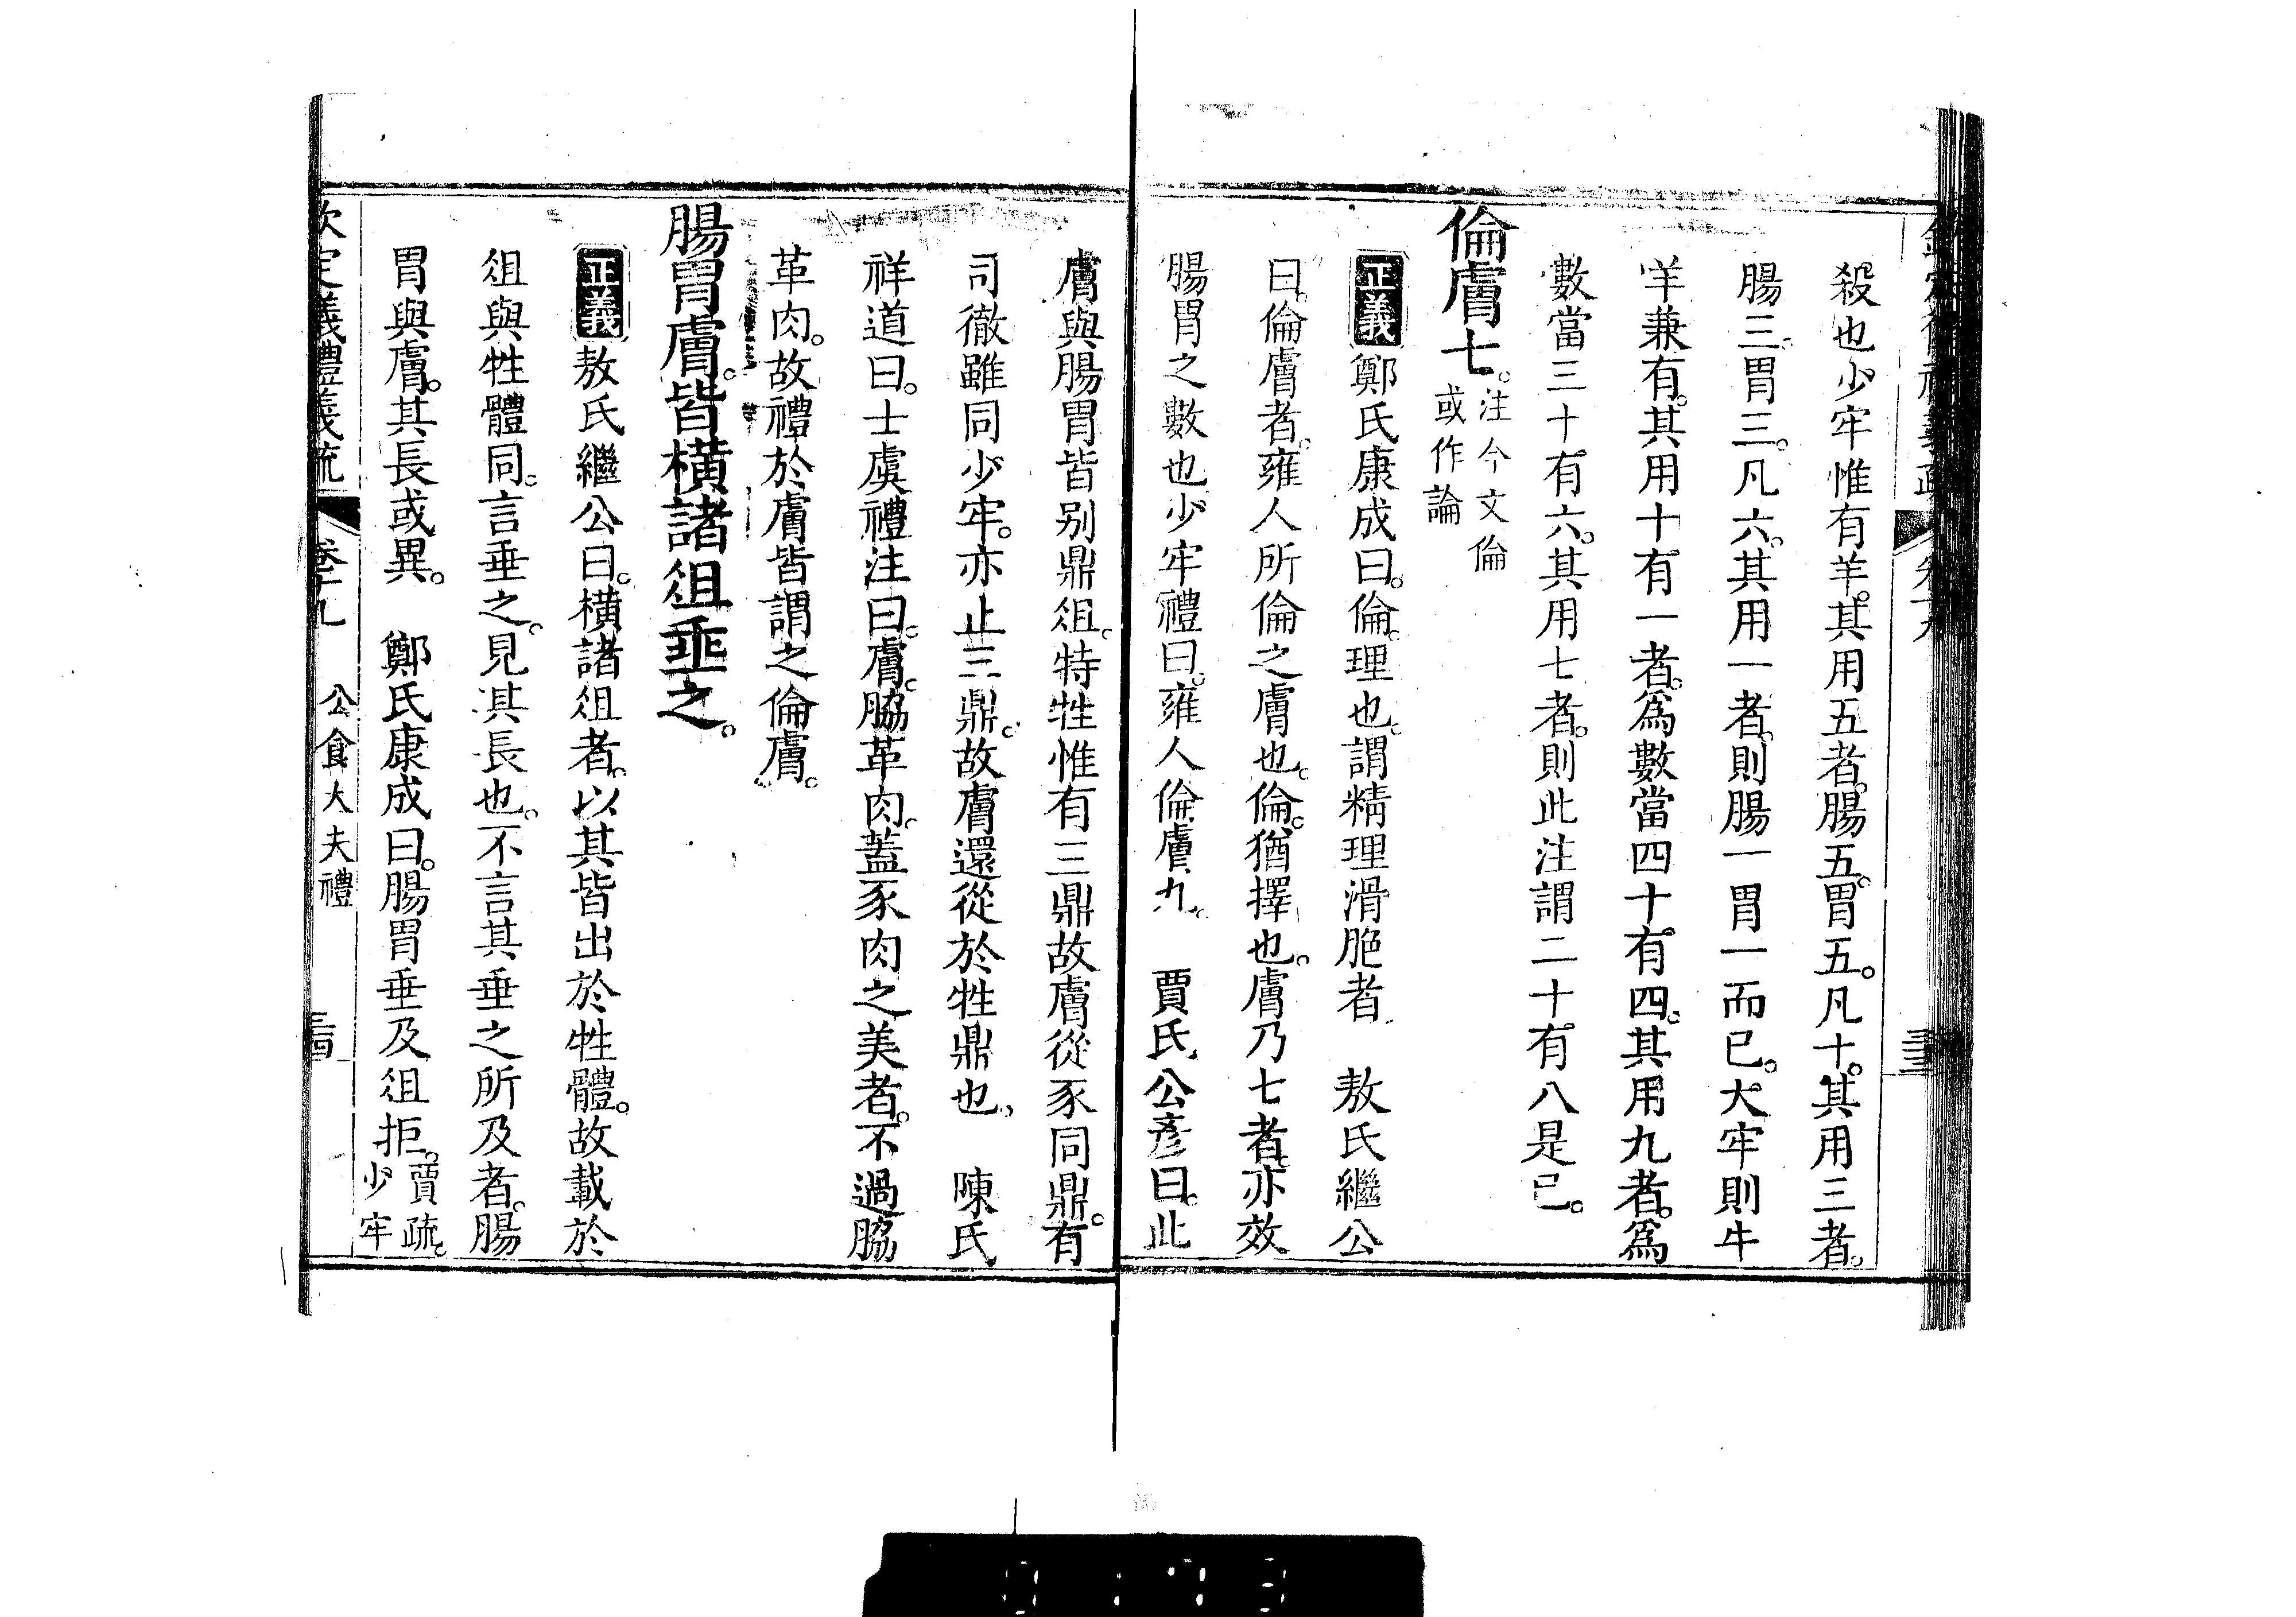 殺也少牢惟有羊。其用五者。腸五。胃五。凡十。其用三者。
腸三。胃三。凡六。其用一者。則腸一胃一而已。大牢則牛
羊兼有。其用十有一者。爲數當四十有四。其用九者。爲
數當三十有六。其用七者。則此注謂二十有八是已。
倫膚七。注今文倫
或作論
正義鄭氏康成曰。倫。理也。謂精理滑脃者 敖氏繼公
曰。倫膚者。雍人所倫之膚也。倫。猶擇也。膚乃七者。亦效
腸胃之數也少牢禮曰。雍人倫膚九。 賈氏公彥曰。此
膚與腸胃皆别鼎俎。特牲惟有三鼎故膚從豕同鼎。有
司徹雖同少牢。亦止三鼎。故膚還從於牲鼎也。 陳氏
祥道曰。士虞禮注曰。膚。脇革肉。蓋豕肉之美者。不過脇
革肉。故禮於膚皆謂之倫膚。
腸胃膚。皆橫諸俎垂之。
正義敖氏繼公曰。橫諸俎者。以其皆出於牲體。故載於
俎與牲體同。言垂之。見其長也。不言其垂之所及者。腸
胃與膚。其長或異。 鄭氏康成曰。腸胃垂及俎拒。賈疏。
少牢
欽定儀禮義疏 卷十九 公食大夫禮